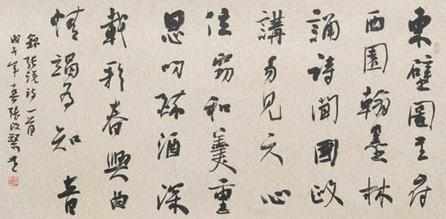 東壁圖書府
西園翰墨林
誦詩聞國政
講易見天心
位竊和羹重
恩叨醉酒深
載歌春興曲
情竭為知音
張說詩一首
年春張改琴書